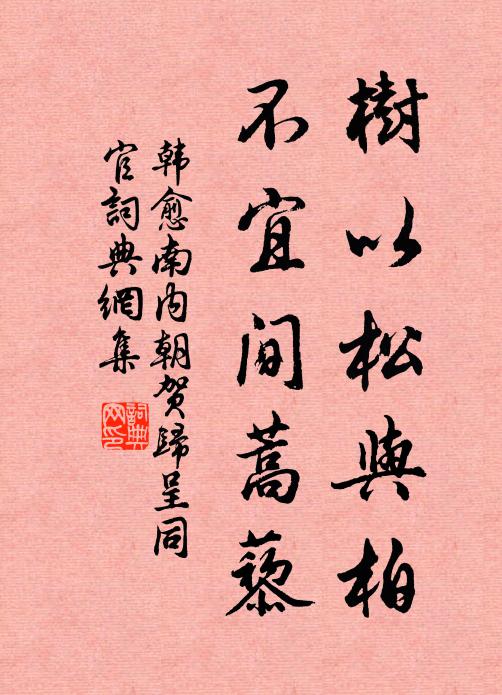 樹以松與柏
不宜間蒿藜
韩愈南内朝贺歸呈同
官詞典網集
詞典
网印